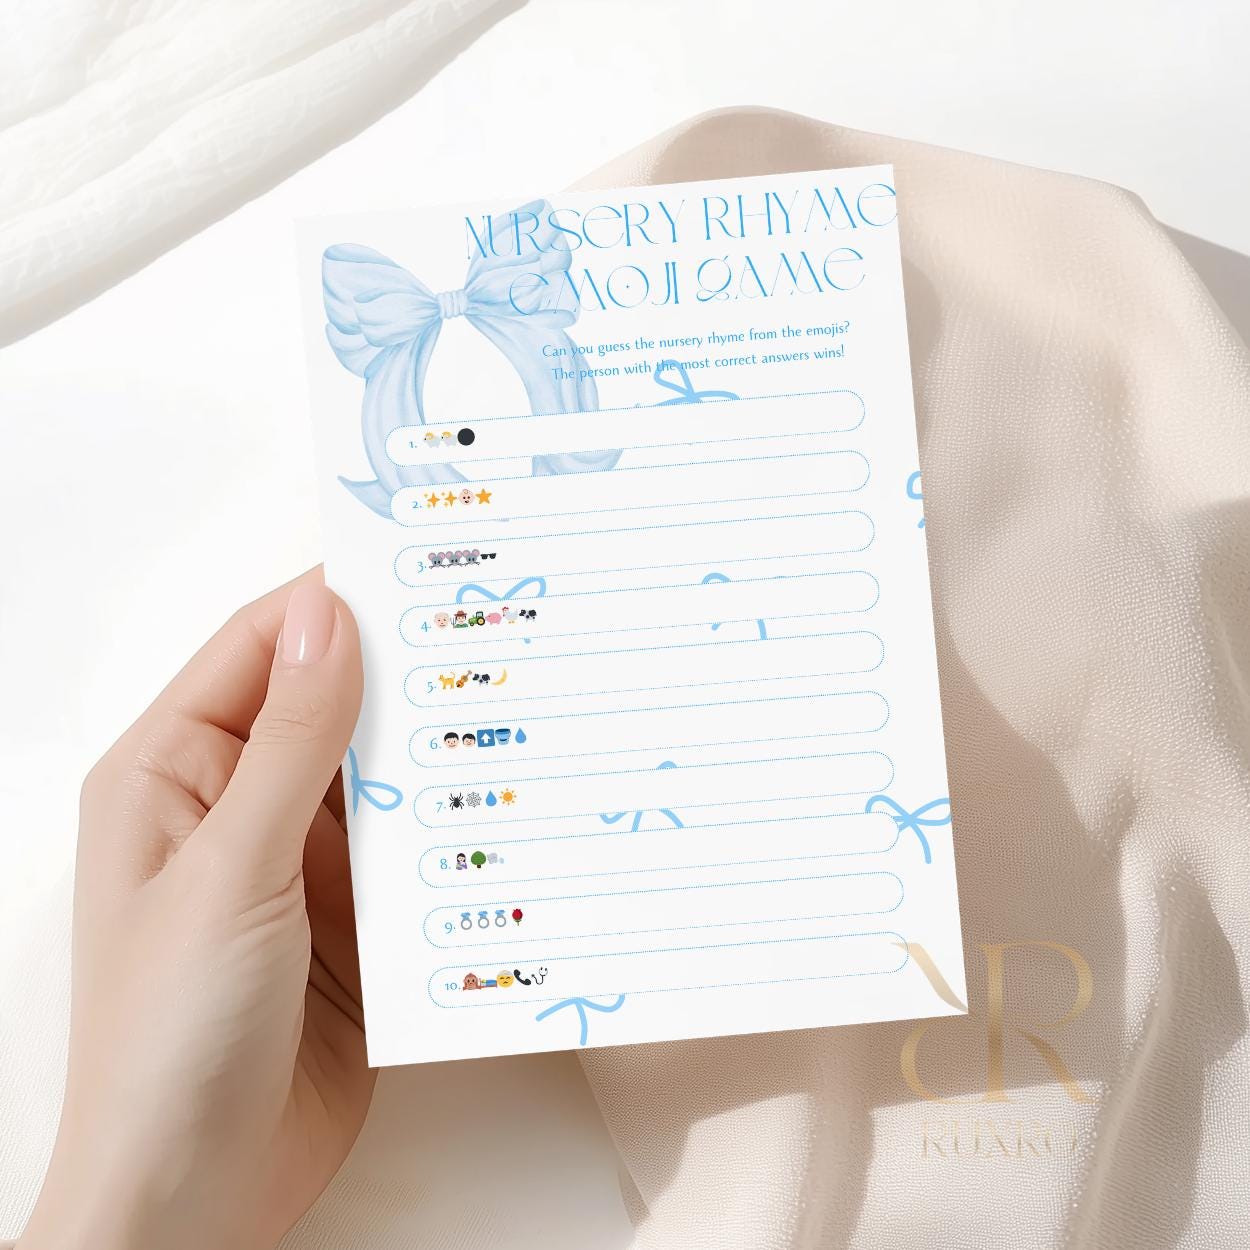 NURSERY RHYME
EMOJI GAME
Can you guess the nursery rhyme from the emojis?
The person with the most correct answers wins!
1. 🐑🐑⚫
2. ✨✨👶⭐
3. 🐭🐭🐭🕶️
4. 👴👨‍🌾🚜🐷🐔🐄
5. 🐈🎻🐄🌙
6. 👨👦⬆️🪣💧
7. 🕷️🕸️💧☀️
8. 🤱🌳🌬️
9. 💍💍💍🌹
10. 🙊🛏️🤕📞🩺
RR
RUXRO